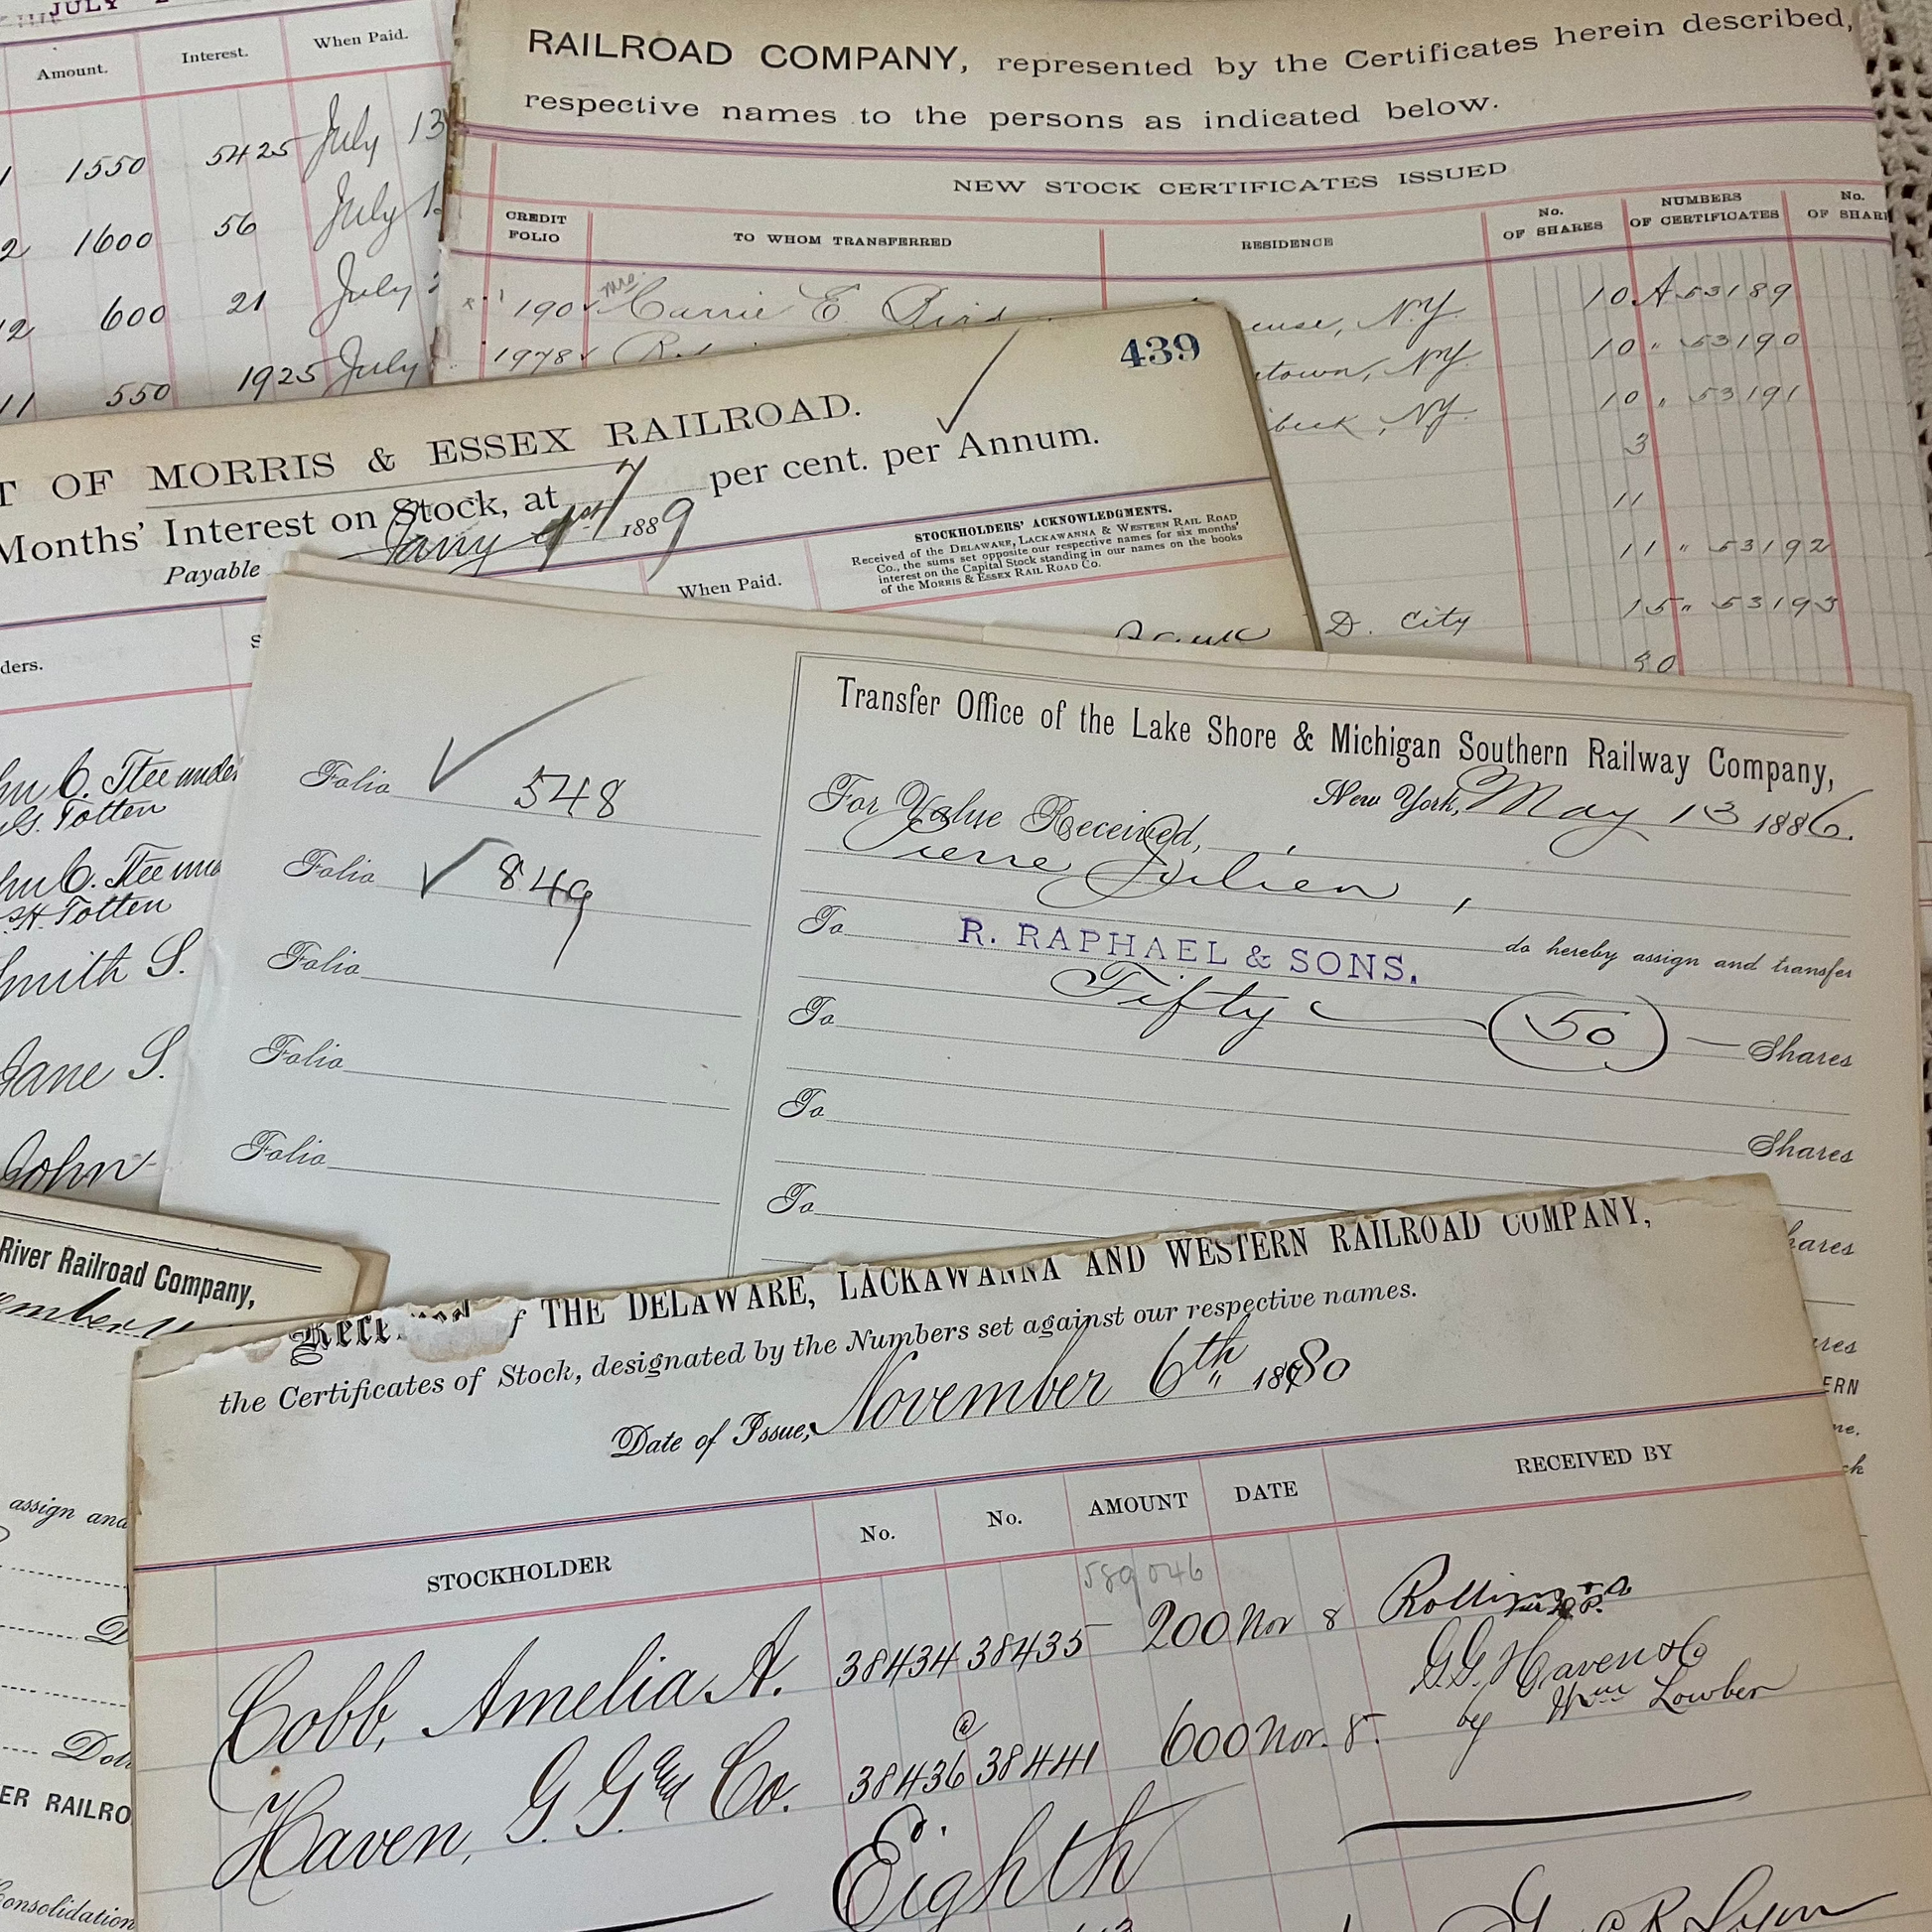 JULY
Amount. Interest. When Paid.
1 1550 5425 July 13
2 1600 56 July 1
12 600 21 July
11 550 1925 July
RAILROAD COMPANY, represented by the Certificates herein described,
respective names to the persons as indicated below.
NEW STOCK CERTIFICATES ISSUED
CREDIT FOLIO TO WHOM TRANSFERRED RESIDENCE No. OF SHARES NUMBERS OF CERTIFICATES No. OF SHAR
190 Mrs. Carrie E Bird use, N.Y. 10 A 53189
1978 town, NY. 10 " 53190
beck, NY. 10 " 53191
3
11
11 " 53192
D. City 15 " 53193
439
T OF MORRIS & ESSEX RAILROAD.
Months' Interest on Stock, at 7 per cent. per Annum.
Payable Jany 1st 1889
When Paid.
STOCKHOLDERS' ACKNOWLEDGMENTS.
Received of the DELAWARE, LACKAWANNA & WESTERN RAIL ROAD
Co., the sums set opposite our respective names for six months'
interest on the Capital Stock standing in our names on the books
of the MORRIS & ESSEX RAIL ROAD Co.
ders.
hn C. Ttee under
G. Totten
hn C. Ttee und
H. Totten
Smith S.
Jane S.
John
Transfer Office of the Lake Shore & Michigan Southern Railway Company,
New York, May 13 1886.
Folio 548
For Value Received,
Pierre Julien,
Folio 849
do hereby assign and transfer
To R. RAPHAEL & SONS.
Folio
Fifty (50) Shares
To
Folio
To
Shares
Folio
To
hares
River Railroad Company,
ember 11
Received of THE DELAWARE, LACKAWANNA AND WESTERN RAILROAD COMPANY,
the Certificates of Stock, designated by the Numbers set against our respective names.
Date of Issue, November 6th 1880
STOCKHOLDER No. No. AMOUNT DATE RECEIVED BY
589046
Cobb, Amelia A. 38434 38435 200 Nov 8
G.G. Haven & Co
by Wm Lowber
Haven, G. G. and Co. 38436 @ 38441 600 Nov. 8.
Eighth
R Lyon
assign and
Doll
ER RAILRO
Consolidation
ares
ERN
me.
ck